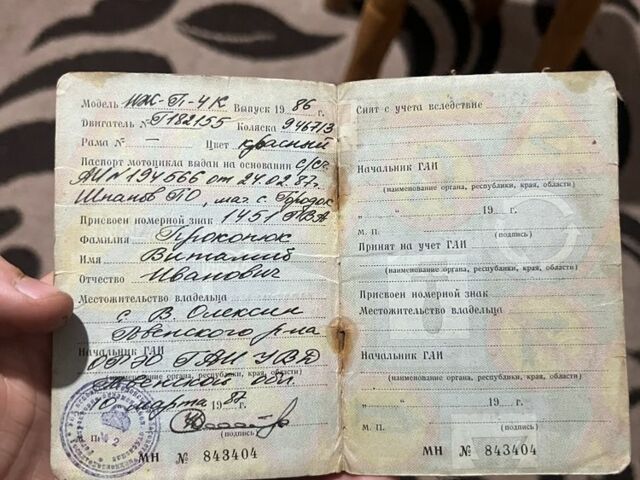 Модель ИЖ-П-4К Выпуск 1986 г.
Двигатель № Г182155 Коляска 946713
Рама № — Цвет красный
Паспорт мотоцикла выдан на основании с/сч.
АИ № 194566 от 24.02.87г.
ПО, маг. с. Городок
Присвоен номерной знак 1451 РВА
Фамилия Прокопюк
Имя Виталий
Отчество Иванович
Местожительство владельца
с. В. Олексин
Ровенского р-на
Начальник ГАИ ГАИ УВД
(наименование органа, республики, края, области)
Ровенской обл.
10 марта 1987 г.
М. П. (подпись)
МН № 843404
Снят с учета вследствие
Начальник ГАИ
(наименование органа, республики, края, области)
„ “ 19 г.
М. П. (подпись)
Принят на учет ГАИ
(наименование органа, республики, края, области)
Присвоен номерной знак
Местожительство владельца
Начальник ГАИ
(наименование органа, республики, края, области)
„ “ 19 г.
М. П. (подпись)
МН № 843404